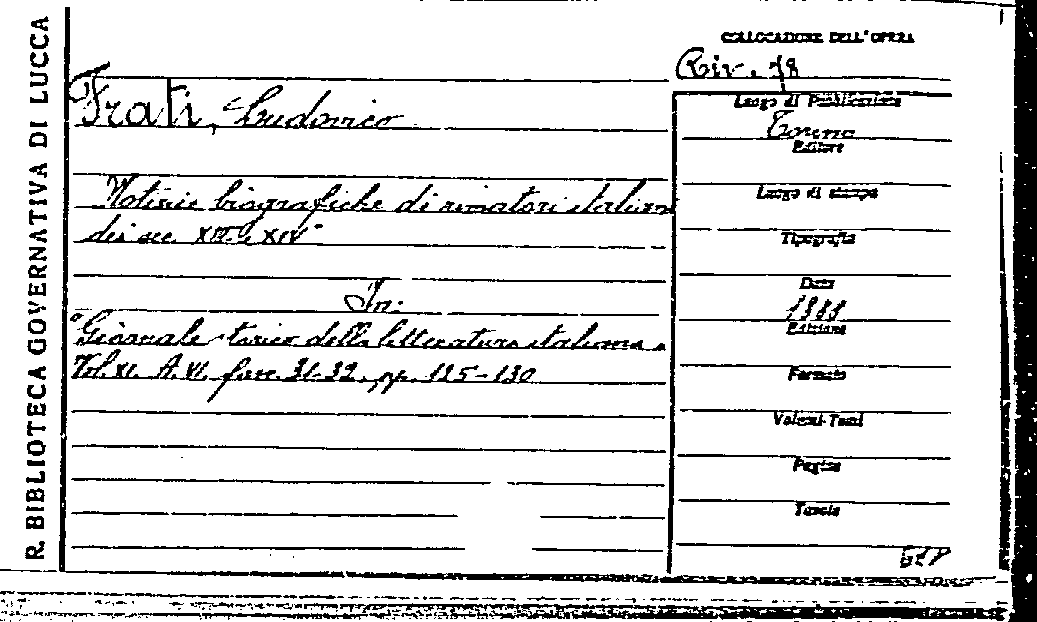 R. BIBLIOTECA GOVERNATIVA DI LUCCA
COLLOCAZIONE DELL'OPERA
Riv. 18
Frati, Ludovico
Notizie biografiche di rimatori italiani
dei sec. XIII e XIV
In:
"Giornale storico della letteratura italiana"
Vol. XI. A. VI. fasc. 31-32, pp. 125-130
Luogo di Pubblicazione
Torino
Editore
Luogo di stampa
Tipografia
Data
1888
Edizione
Formato
Volumi-Tomi
Pagine
Tavole